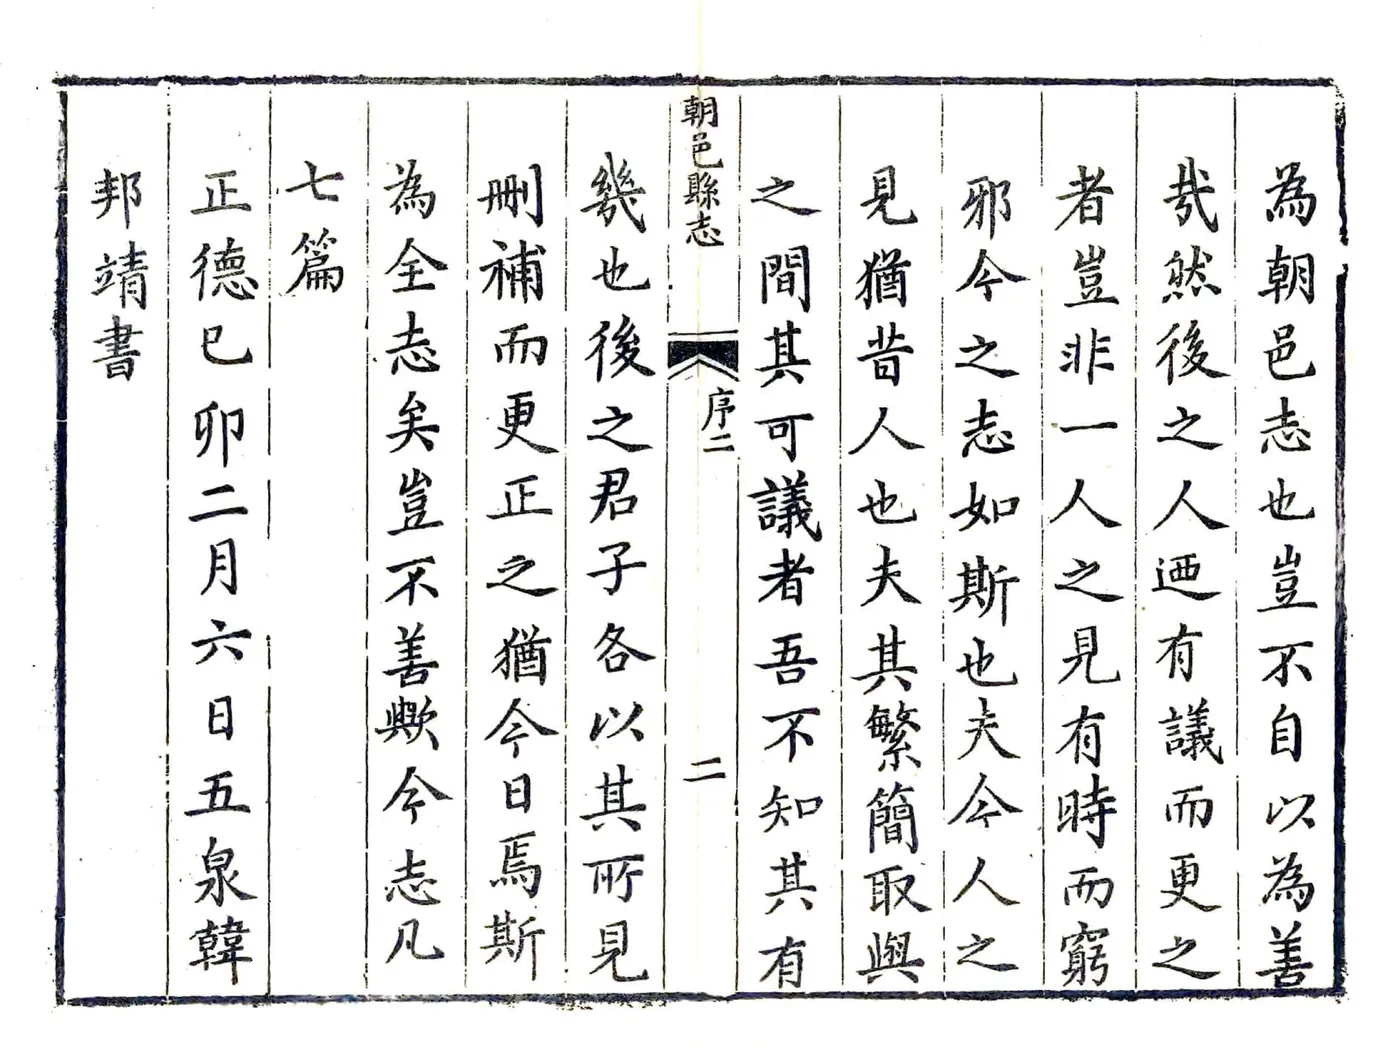 為朝邑志也豈不自以為善
㢤然後之人迺有議而更之
者豈非一人之見有時而窮
邪今之志如斯也夫今人之
見猶昔人也夫其繁簡取與
之間其可議者吾不知其有
朝邑縣志
序二
二
幾也後之君子各以其所見
刪補而更正之猶今日焉斯
為全志矣豈不善歟今志凡
七篇
正德已卯二月六日五泉韓
邦靖書